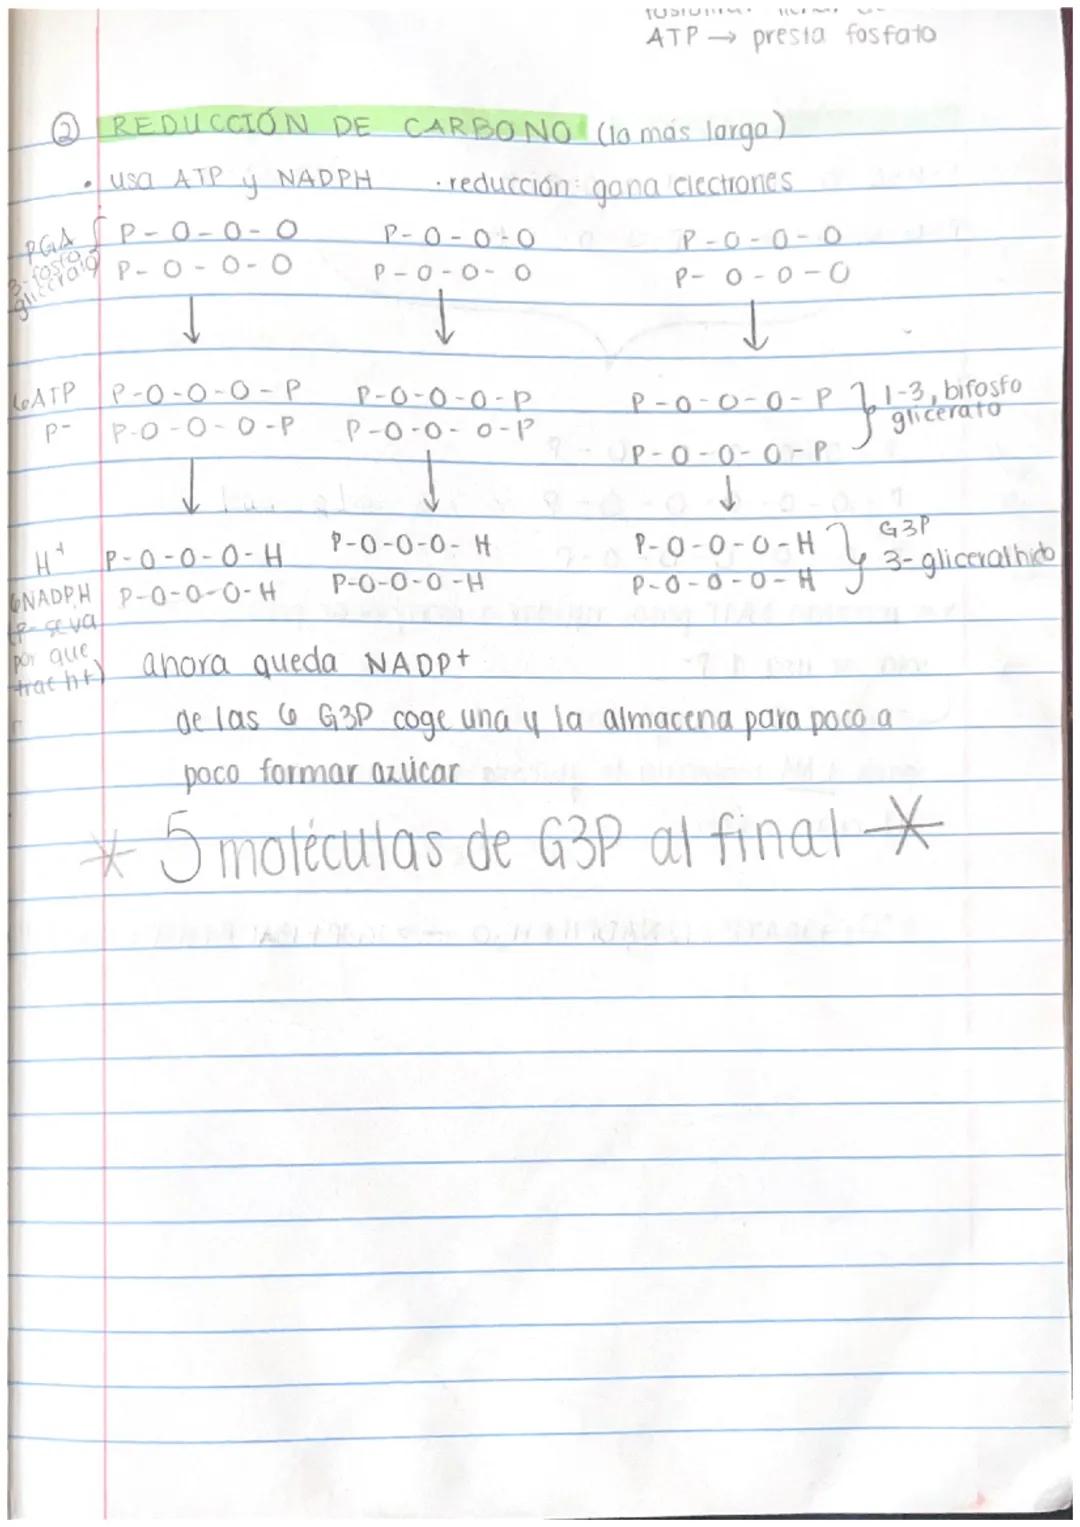 ATP → presta fosfato
② REDUCCIÓN DE CARBONO (la más larga)
• usa ATP y NADPH · reducción: gana electrones
PGA { P-O-O-O P-O-O-O P-O-O-O
3-fosfo glicerato P-O-O-O P-O-O-O P-O-O-O
↓ ↓ ↓
6ATP P-O-O-O-P P-O-O-O-P P-O-O-O-P } 1-3, bifosfo
P- P-O-O-O-P P-O-O-O-P P-O-O-O-P glicerato
↓ ↓ ↓
H+ P-O-O-O-H P-O-O-O-H P-O-O-O-H } G3P
6NADPH P-O-O-O-H P-O-O-O-H P-O-O-O-H 3-gliceralhido
(P- se va
por que
trae h+) ahora queda NADP+
de las 6 G3P coge una y la almacena para poco a
poco formar azúcar
* 5 moléculas de G3P al final *